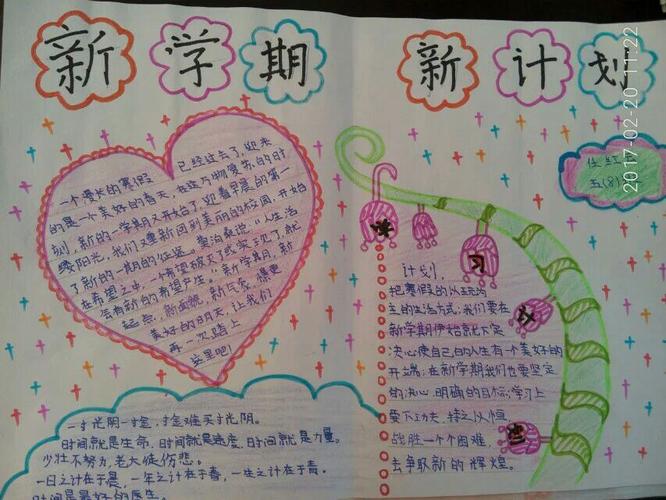 新学期 新计划
2017-02-20 11:22
五(8)
一个漫长的寒假 已经过去了,迎来
的是一个美好的春天,在这万物复苏的时
刻,新的一学期又开始了,迎着早晨的第一
缕阳光,我们又重新回到美丽的校园,开始
了新的一期的征途。"人生活
在希望之中,一个希望破灭了或实现了,就
会有新的希望产生。"新学期,新
起点,新面貌,新气象,最更
美好的明天,让我们
再一次踏上
这里吧!
学
习
计
划
计划,
把寒假的以玩为
主的生活方式,我们要在
新学期伊始就下定
决心使自己的人生有一个美好的
开端;在新学期我们也要坚定
的决心,明确的目标,学习上
要下功夫,持之以恒
战胜一个个困难,
去争取新的辉煌。
一寸光阴一寸金,寸金难买寸光阴。
时间就是生命,时间就是速度,时间就是力量。
少壮不努力,老大徒伤悲。
一日之计在于晨,一年之计在于春,一生之计在于青。
时间是最好的医生。